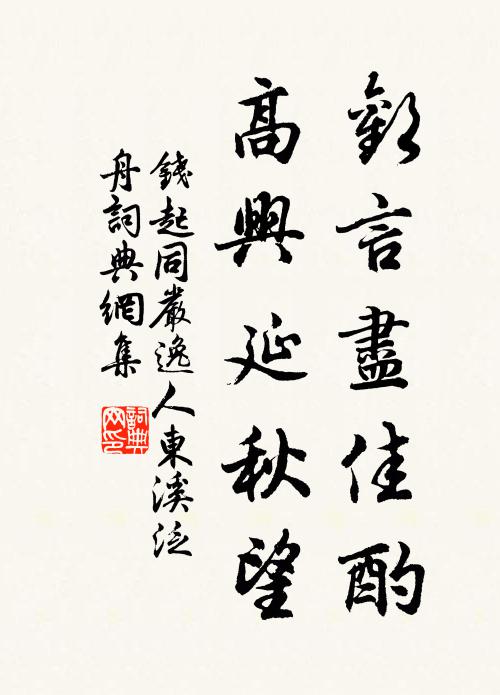 歡言盡佳酌
高興延秋望
錢起同嚴逸人東溪泛
舟詞典網集
詞典
网印